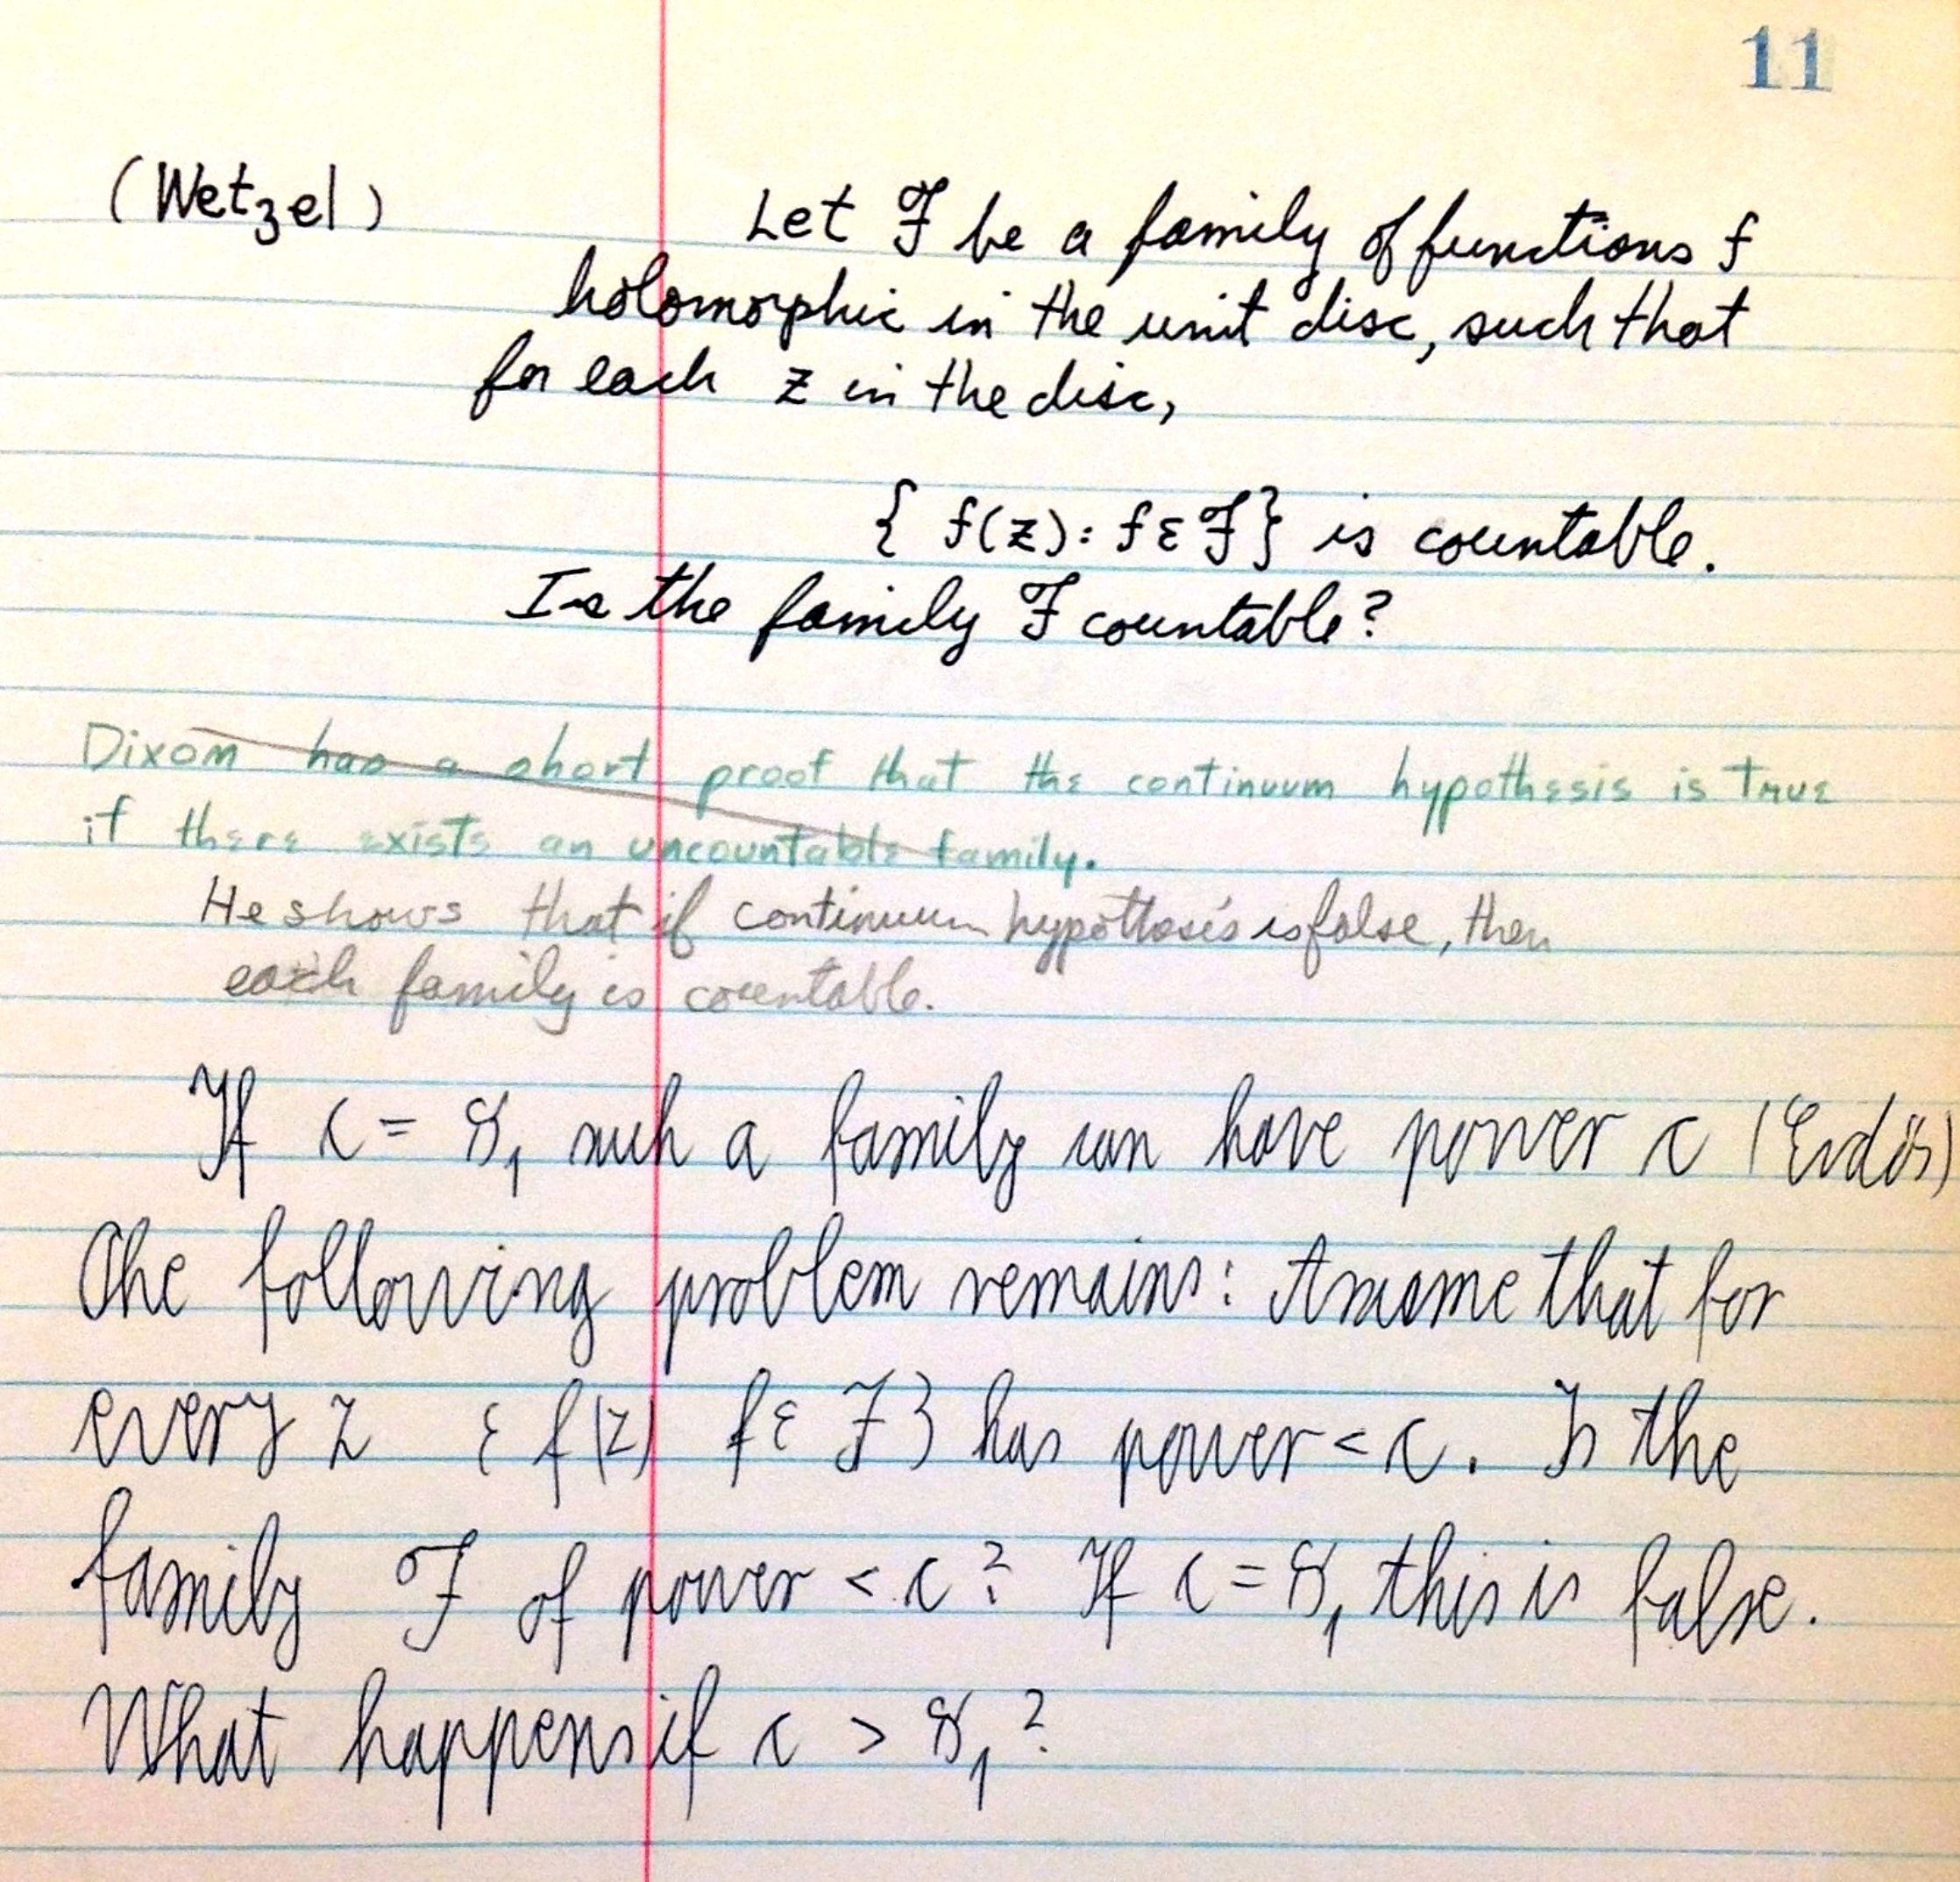 11
(Wetzel)
Let ℱ be a family of functions f
holomorphic in the unit disc, such that
for each z in the disc,
{ f(z): f ε ℱ } is countable.
Is the family ℱ countable?
Dixon has a short proof that the continuum hypothesis is true
if there exists an uncountable family.
He shows that if continuum hypothesis is false, then
each family is countable.
If c = ℵ₁ such a family can have power c (Erdös)
The following problem remains: Assume that for
every z { f(z) f ε ℱ } has power < c. Is the
family ℱ of power < c? If c = ℵ₁ this is false.
What happens if c > ℵ₁?